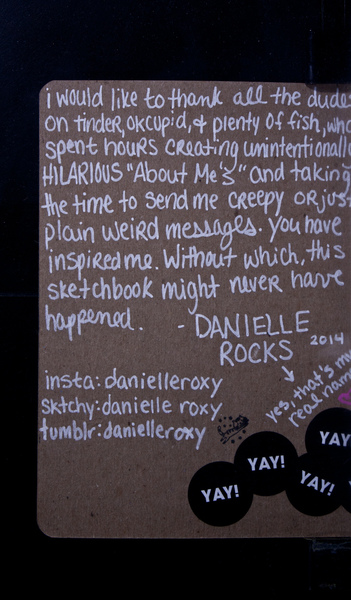 i would like to thank all the dude
on tinder, okcupid, & plenty of fish, who
spent hours creating unintentionall
HILARIOUS "About Me's" and taking
the time to send me creepy OR just
plain weird messages. you have
inspired me. Without which, this
sketchbook might never have
happened. - DANIELLE
ROCKS 2014
yes, that's my
real name
insta: danielleroxy
Sktchy: danielle roxy
tumblr: danielleroxy
YAY!
YAY!
YAY!
YAY!